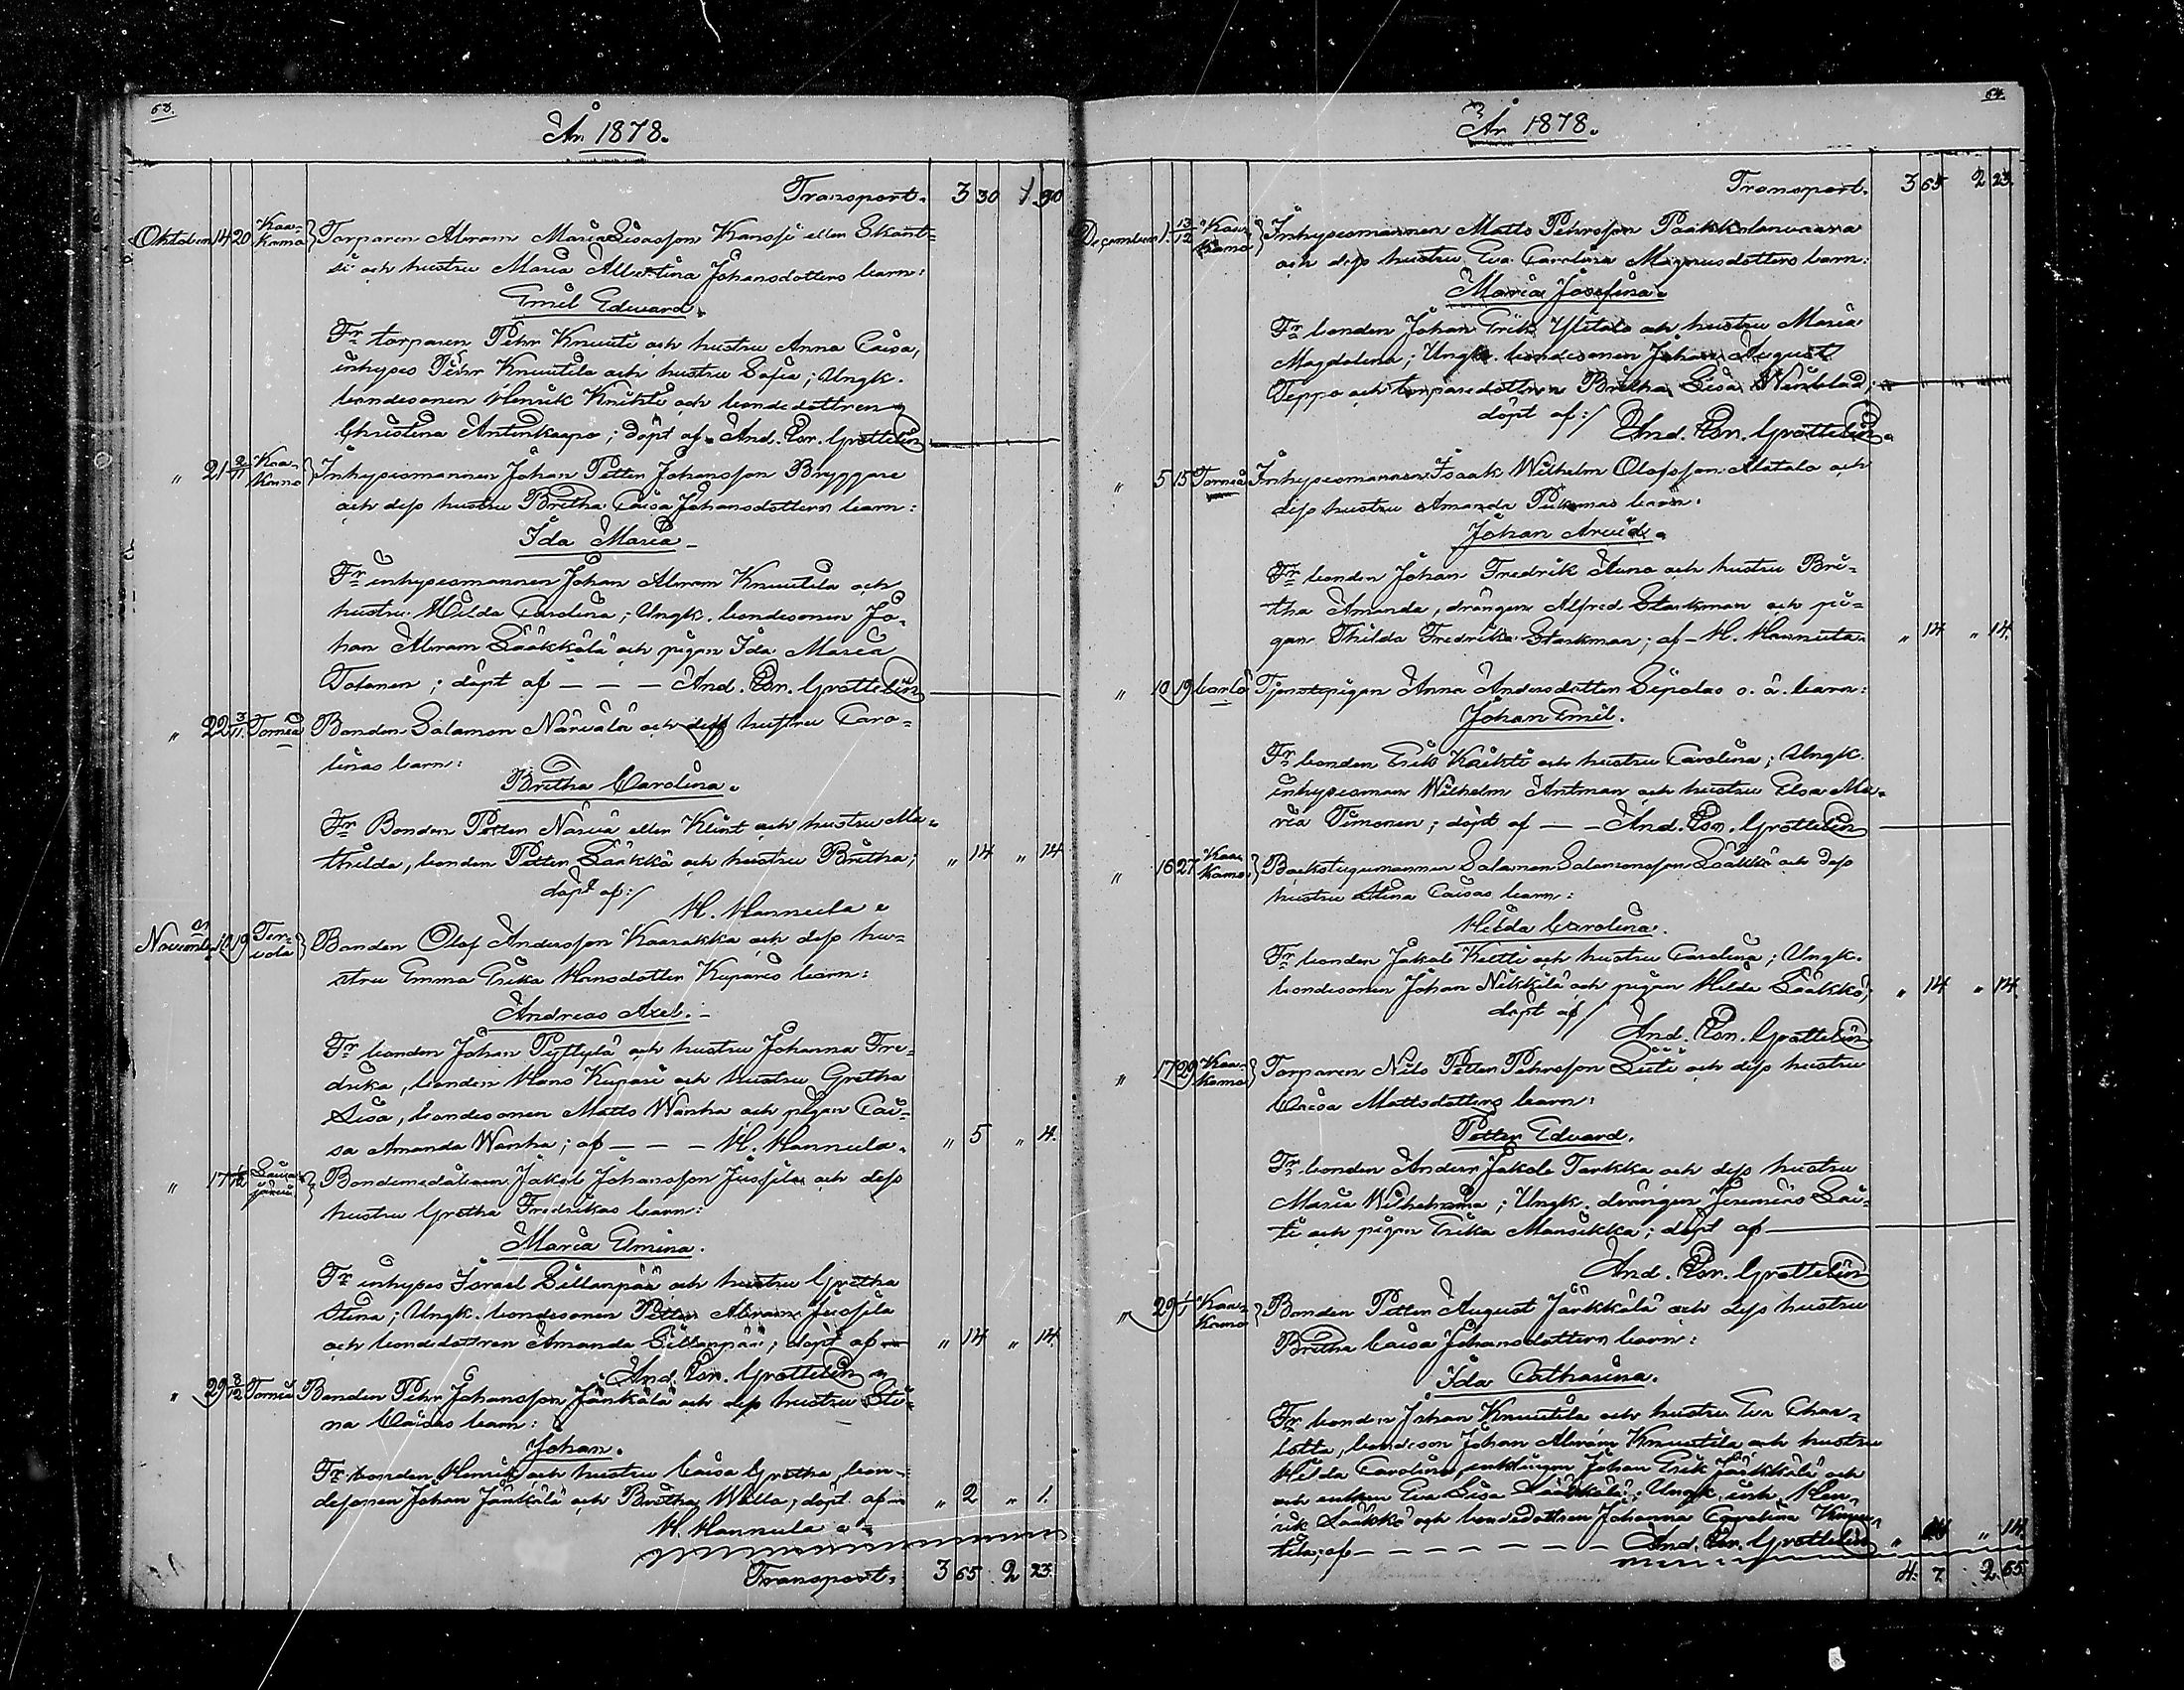 63.
År 1878.
Transport. 3 30 1 90
Oktober 14 20 Kaa-kamo Torparen Abram MariaLisasson Kanssi eller Skant-
si och hustru Maria Albertina Johansdotters barn:
Emil Edward.
Fr torparen Pehr Knuuti och hustru Anna Caisa,
inhyses Pehr Knuutila och hustru Sofia; Ungk.
bondesonen Henrik Knihti och bondedottren
Christina Antinkaapo; döpt af And. Con. Grotteliin
" 21 2/11 Kaa-kamo Inhysesmannen Johan Petter Johansson Bryggare
och dess hustru Britha Caisa Johansdotters barn:
Ida Maria
Fr inhysesmannen Johan Abram Knuutila och
hustru Hilda Carolina; Ungk. bondesonen Jo-
han Abram Lääkkölä och pigan Ida Maria
Tolonen; döpt af — — — And. Con. Grotteliin
" 22 3/11. Torneå Bonden Salamon Närvälä och dess hustru Caro-
linas barn:
Britha Carolina.
Fr Bonden Petter Närvä eller Klint och hustru Ma-
thilda, bonden Petter Lääkkö och hustru Britha; " 14 " 14
döpt af:/
H. Hannula.
November 10 19 Ter-vola Bonden Olof Andersson Kaarakka och dess hu-
stru Emma Erika Hansdotter Kuparis barn:
Andreas Axel.
Fr bonden Johan Pyttylä och hustru Johanna Fre-
drika, bonden Hans Kupari och hustru Gretha
Lisa, bondesonen Matts Wanha och pigan Cai-
sa Amanda Wanha; af — — — H. Hannula. " 5 " 4.
" 17 Bondemedålsmen Jakob Johansson Jussila och dess
hustru Gretha Fredrikas barn:
Maria Elmina.
Fr inhyses Israel Sillanpää och hustru Gretha
Stina; Ungk. bondesonen Petter Abram Jussila
och bondedottren Amanda Sillanpää; döpt af " 14 " 14.
And. Con. Grotteliin
" 29 8/12 Torneå Bonden Pehr Johansson Jänkälä och dess hustru Sti-
na Caisas barn:
Johan.
Fr bonden Henrik och hustru Caisa Gretha, bon-
desonen Johan Jänkälä och Britha Walla; döpt af " 2 " 1.
H. Hannula
Transport. 3 65 2 23.
64.
År 1878.
Transport. 3 65 2 23.
December 1 13/12 Kaa-kamo Inhysesmannen Matts Pehrsson Paakkolanvaara
och dess hustru Eva Carolina Magnusdotters barn:
Maria Josefina.
Fr bonden Johan Erik Ylitalo och hustru Maria
Magdalena; Ungk. bondesonen Johan August
Teppo och torparedottren Britha Lisa Wänblad;
döpt af:/ And. Con. Grotteliin.
" 5 15 Torneå Inhysesmannen Isaak Wilhelm Olofsson Alatalo och
dess hustru Amanda barn:
Johan Arvid.
Fr bonden Johan Fredrik Auno och hustru Bri-
tha Amanda, drängen Alfred Starkman och pi-
gan Thilda Fredrika Starkman; af — H. Hannula. " 14 " 14.
" 10 19 Carlö Tjenstepigan Anna Andersdotter Sipolas o. ä. barn:
Johan Emil.
Fr bonden Erik Kaihti och hustru Carolina; Ungk.
inhysesman Wilhelm Antman och hustru Elsa Ma-
ria Timonen; döpt af — — And. Con. Grotteliin
" 16 27 Kaa-kamo Backstugumannen Salamon Salamonsson Lääkkö och dess
hustru Stina Caisas barn:
Hilda Carolina.
Fr bonden Jakob Kiltti och hustru Carolina; Ungk.
bondesonen Johan Nikkilä och pigan Hilda Lääkkö; " 14 " 14.
döpt af/
And. Con. Grotteliin
" 17 29 Kaa-kamo Torparen Nils Petter Pehrsson Liiti och dess hustru
Caisa Mattsdotters barn:
Petter Edvard.
Fr bonden Anders Jakob Tarkka och dess hustru
Maria Wilhelmina; Ungk. drängen Jeremias Lai-
ti och pigan Erika Mansikka; döpt af
And. Con. Grotteliin
" 29 1/1 Kaa-kamo Bonden Petter August Järkkälä och dess hustru
Britha Caisa Johansdotters barn:
Ida Catharina.
Fr bonden Johan Knuutila och hustru Eva Char-
lotta, bondeson Johan Abram Knuutila och hustru
Hilda Carolina, enklingen Johan Erik Järkkälä och
och enkan Eva Lisa Lääkkölä; Ungk. inh. Hen-
rik Lääkkö och bondedottren Johanna Carolina Knuu-
tila; af — — — — — — — And. Con. Grotteliin " 14 " 14.
4. 7. 2 65.